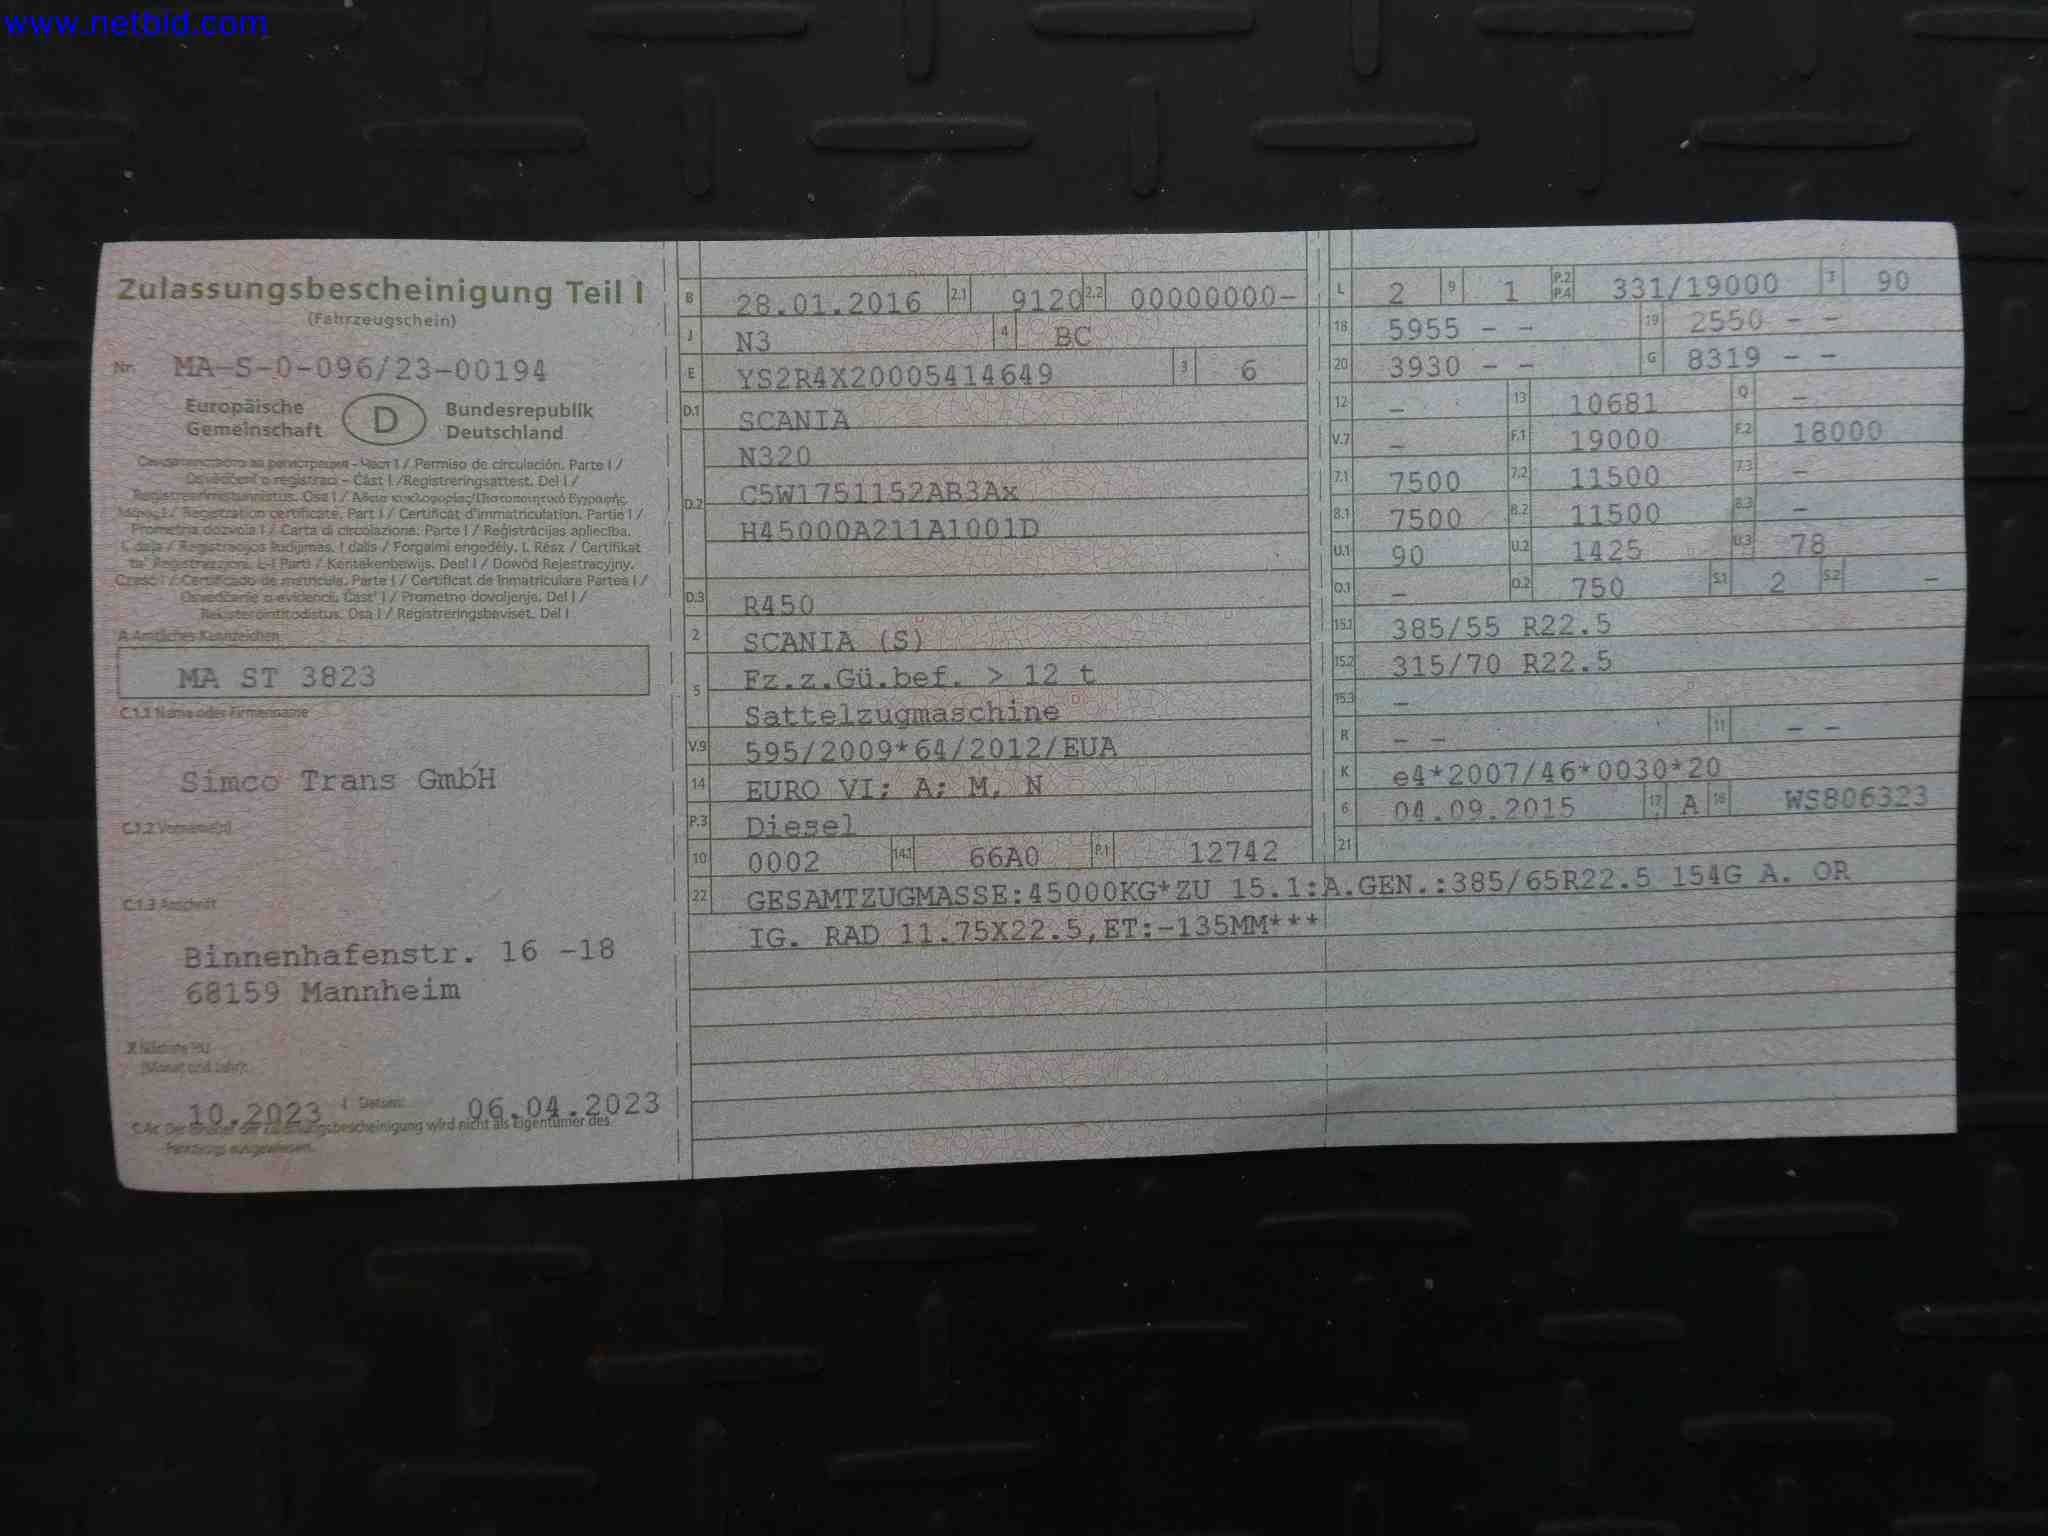 www.netbid.com
Zulassungsbescheinigung Teil I
(Fahrzeugschein)
Nr. MA-S-0-096/23-00194
Europäische Gemeinschaft D Bundesrepublik Deutschland
Свидетелство за регистрация - Част I / Permiso de circulación. Parte I /
Osvědčení o registraci - Část I /Registreringsattest. Del I /
Registreerimistunnistus. Osa I / Άδεια κυκλοφορίας/Πιστοποιητικό Εγγραφής
Μέρος I / Registration certificate. Part I / Certificat d'immatriculation. Partie I /
Prometna dozvola I / Carta di circolazione. Parte I / Reģistrācijas apliecība.
I. daļa / Registracijos liudijimas. I dalis / Forgalmi engedély. I. Rész / Certifikat
ta' Reġistrazzjoni. L-I Parti / Kentekenbewijs. Deel I / Dowód Rejestracyjny.
Część I / Certificado de matrícula. Parte I / Certificat de înmatriculare Partea I /
Osvedčenie o evidencii. Časť I / Prometno dovoljenje. Del I /
Rekisteröintitodistus. Osa I / Registreringsbeviset. Del I
A Amtliches Kennzeichen
MA ST 3823
C.1.1 Name oder Firmenname
Simco Trans GmbH
C.1.2 Vorname(n)
C.1.3 Anschrift
Binnenhafenstr. 16 -18
68159 Mannheim
X Nächste HU
(Monat und Jahr):
10.2023 I Datum: 06.04.2023
C.4c Der Inhaber der Zulassungsbescheinigung wird nicht als Eigentümer des
Fahrzeugs ausgewiesen.
B 28.01.2016 2.1 9120 2.2 00000000-
J N3 4 BC
E YS2R4X20005414649 3 6
D.1 SCANIA
D.2 N320
C5W1751152AB3Ax
H45000A211A1001D
D.3 R450
2 SCANIA (S)
5 Fz.z.Gü.bef. > 12 t
Sattelzugmaschine
V.9 595/2009*64/2012/EUA
14 EURO VI; A; M, N
P.3 Diesel
10 0002 14.1 66A0 P.1 12742
L 2 9 1 P.2 P.4 331/19000 T 90
18 5955 - - 19 2550 - -
20 3930 - - G 8319 - -
12 - 13 10681 Q -
V.7 - F.1 19000 F.2 18000
7.1 7500 7.2 11500 7.3 -
8.1 7500 8.2 11500 8.3 -
U.1 90 U.2 1425 U.3 78
O.1 - O.2 750 S.1 2 S.2 -
15.1 385/55 R22.5
15.2 315/70 R22.5
15.3 -
R - - 11 - -
K e4*2007/46*0030*20
6 04.09.2015 17 A 16 WS806323
21
22 GESAMTZUGMASSE:45000KG*ZU 15.1:A.GEN.:385/65R22.5 154G A. OR
IG. RAD 11.75X22.5,ET:-135MM***